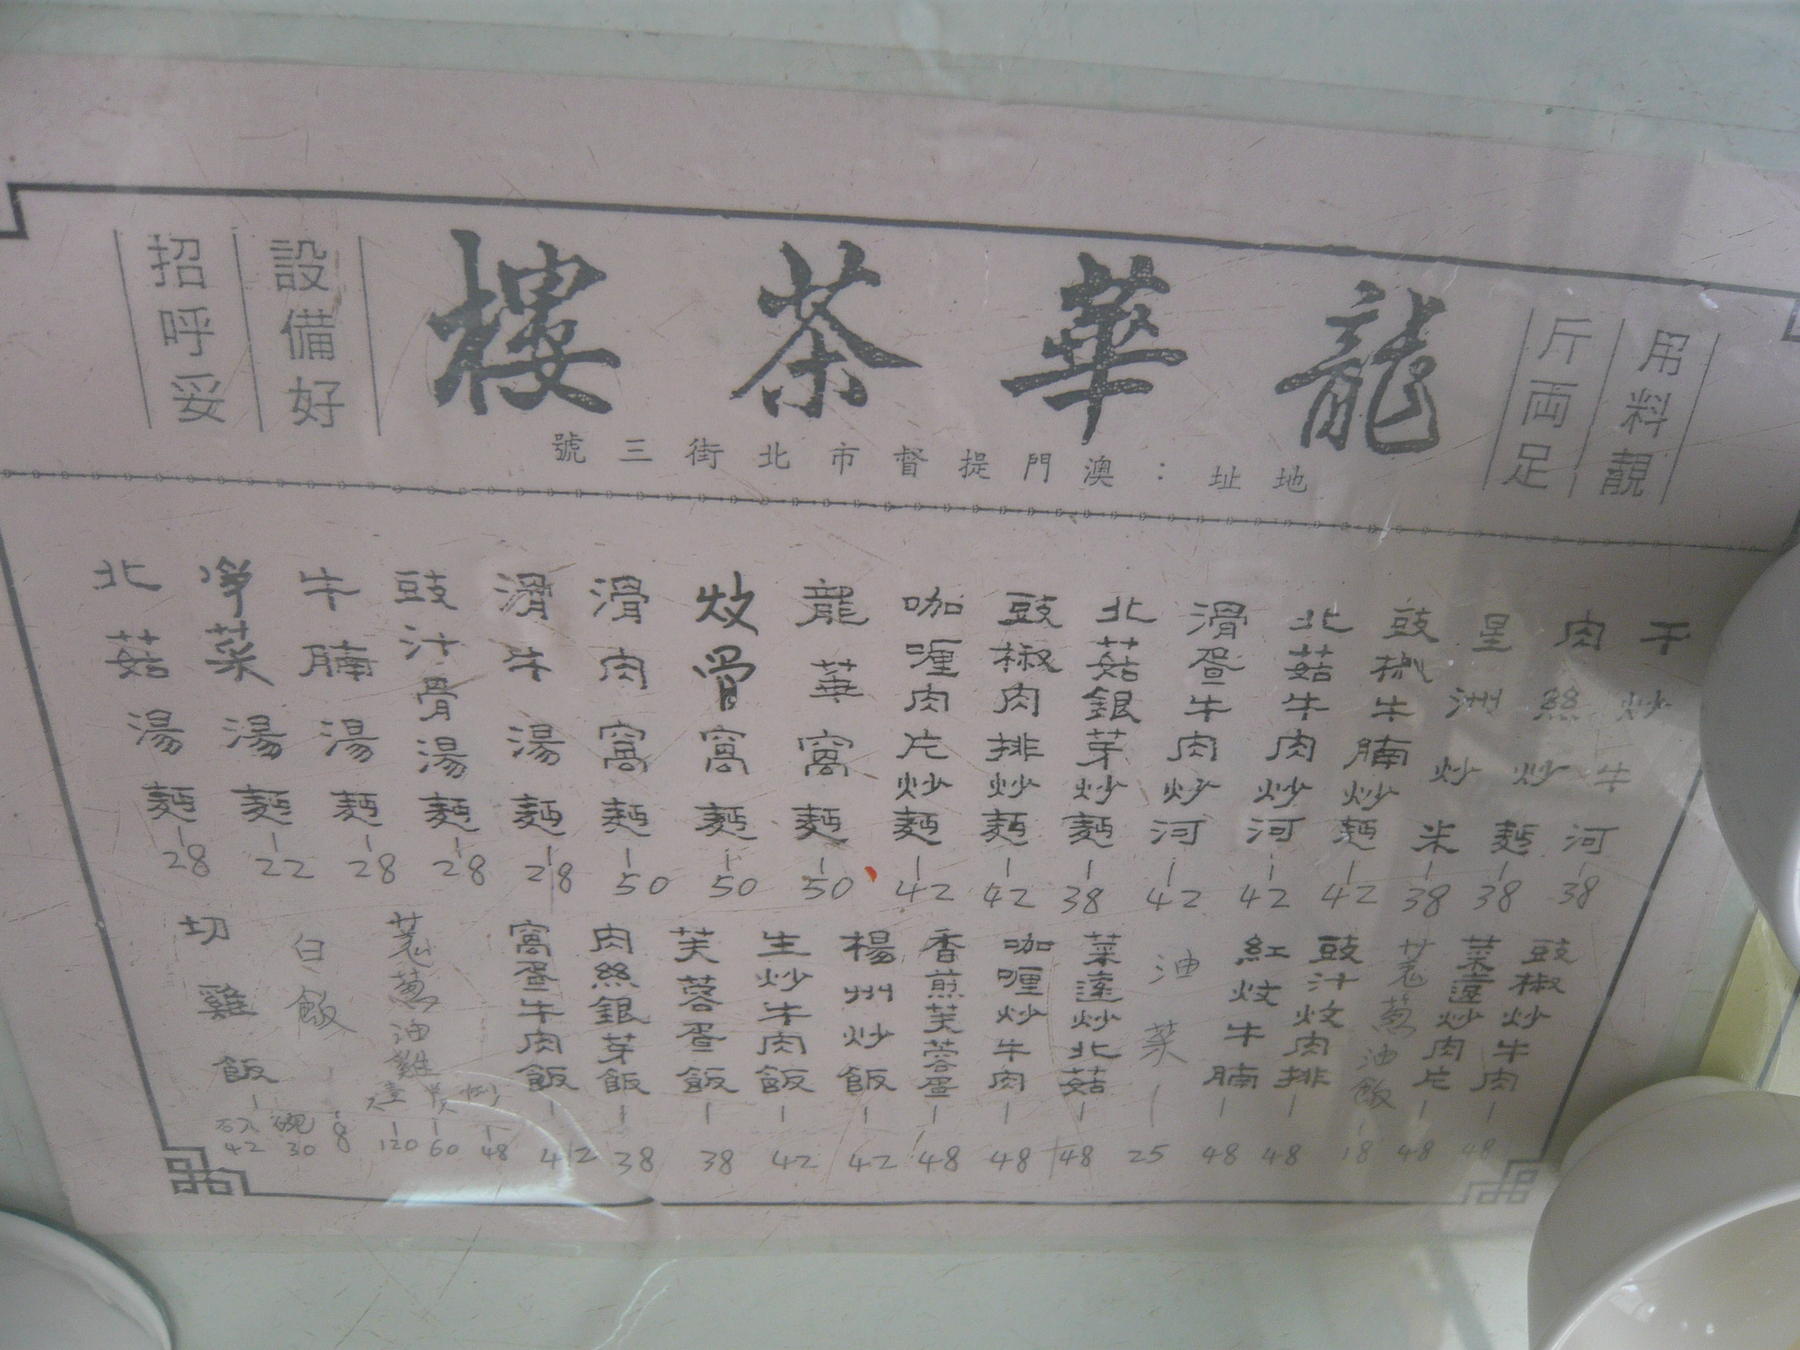 用料靚
斤両足
龍華茶樓
設備好
招呼妥
地址：澳門提督市北街三號
干炒牛河 38
肉絲炒麵 38
星洲炒米 38
豉椒牛腩炒麵 42
北菇牛肉炒河 42
滑蛋牛肉炒河 42
北菇銀芽炒麵 38
豉椒肉排炒麵 42
咖喱肉片炒麵 42
龍華窩麵 50
炆骨窩麵 50
滑肉窩麵 50
滑牛湯麵 28
豉汁骨湯麵 28
牛腩湯麵 28
淨菜湯麵 22
北菇湯麵 28
豉椒炒牛肉 48
菜遠炒肉片 48
羌葱油飯 18
豉汁炆肉排 48
紅炆牛腩 48
油菜 25
菜遠炒北菇 48
咖喱炒牛肉 48
香煎芙蓉蛋 48
楊州炒飯 42
生炒牛肉飯 42
芙蓉蛋飯 38
肉絲銀芽飯 38
窩蛋牛肉飯 42
羌葱油雞 120 60 例 48
白飯 8
切雞飯 碗 30 42